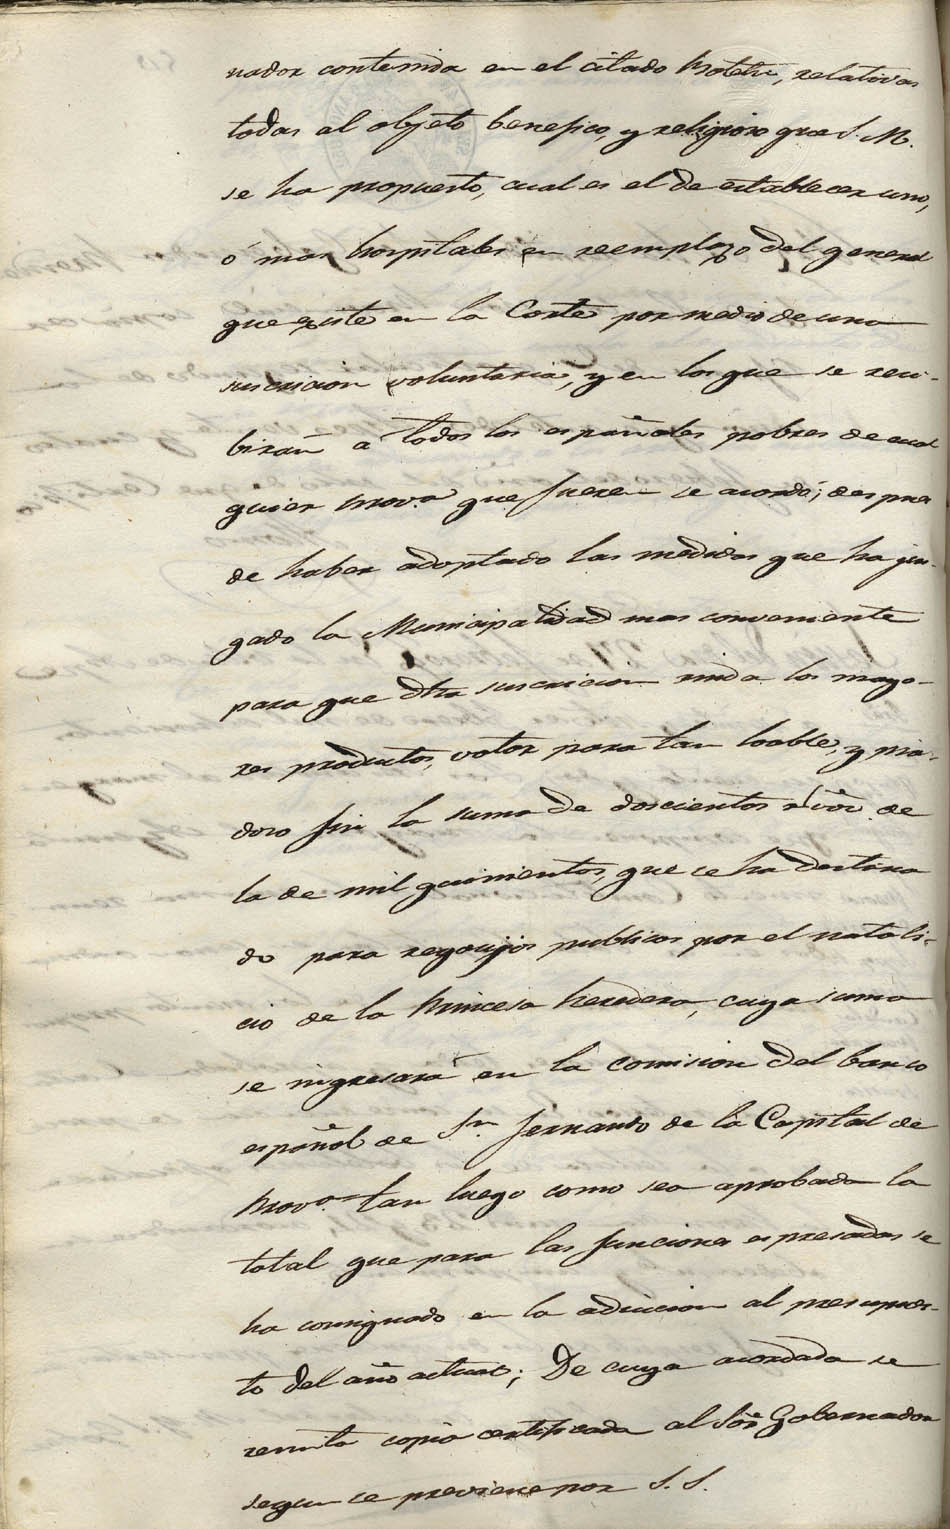 nador contenida en el citado Boletin, relativas
todas al objeto benefico, y religioso que S. M.
se ha propuesto, cual es el de establecer uno,
ó mas hospitales en reemplazo del general
que existe en la Corte por medio de una
suscricion voluntaria, y en los que se reci-
biran á todos los españoles pobres de cual
quier prov.ª que fueren se acordó; despues
de haber adoptado las medidas que ha juz-
gado la Municipalidad mas conveniente
para que dha suscricion rinda los mayo-
res productos, votar para tan loable, y pia-
doso fin la suma de doscientos r.s von. de
la de mil quinientos que se ha destina
do para regocijos publicos por el natali-
cio de la Princesa heredera, cuya suma
se ingresará en la comision del banco
español de Sn. Fernando de la Capital de
Prov.ª tan luego como sea aprobada la
total que para las funciones espresadas se
ha consignado en la adiccion al presupues-
to del año actual; De cuya acordada se
remita copia certificada al Sor. Gobernador
segun se previene por S. S.